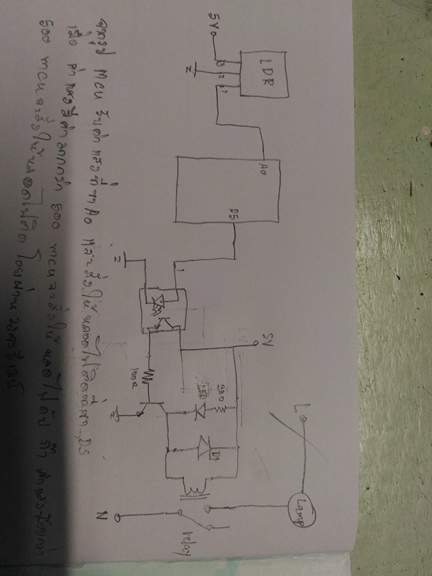 L
Lamp
LDR
A0
5V
D5
5V
3 2 1
220
LED
D1
relay
1
100Ω
N
จากรูป MCU รับค่าแสงที่ขา A0 และสั่งให้หลอดไฟติดที่ขา D5
เมื่อ ค่าแสงมีค่ามากกว่า 500 mcu จะสั่งให้ หลอดไฟดับ ถ้า ค่าแสงน้อยกว่า
500 mcu จะสั่งให้หลอดไฟติด โดยผ่าน วงจรรีเลย์